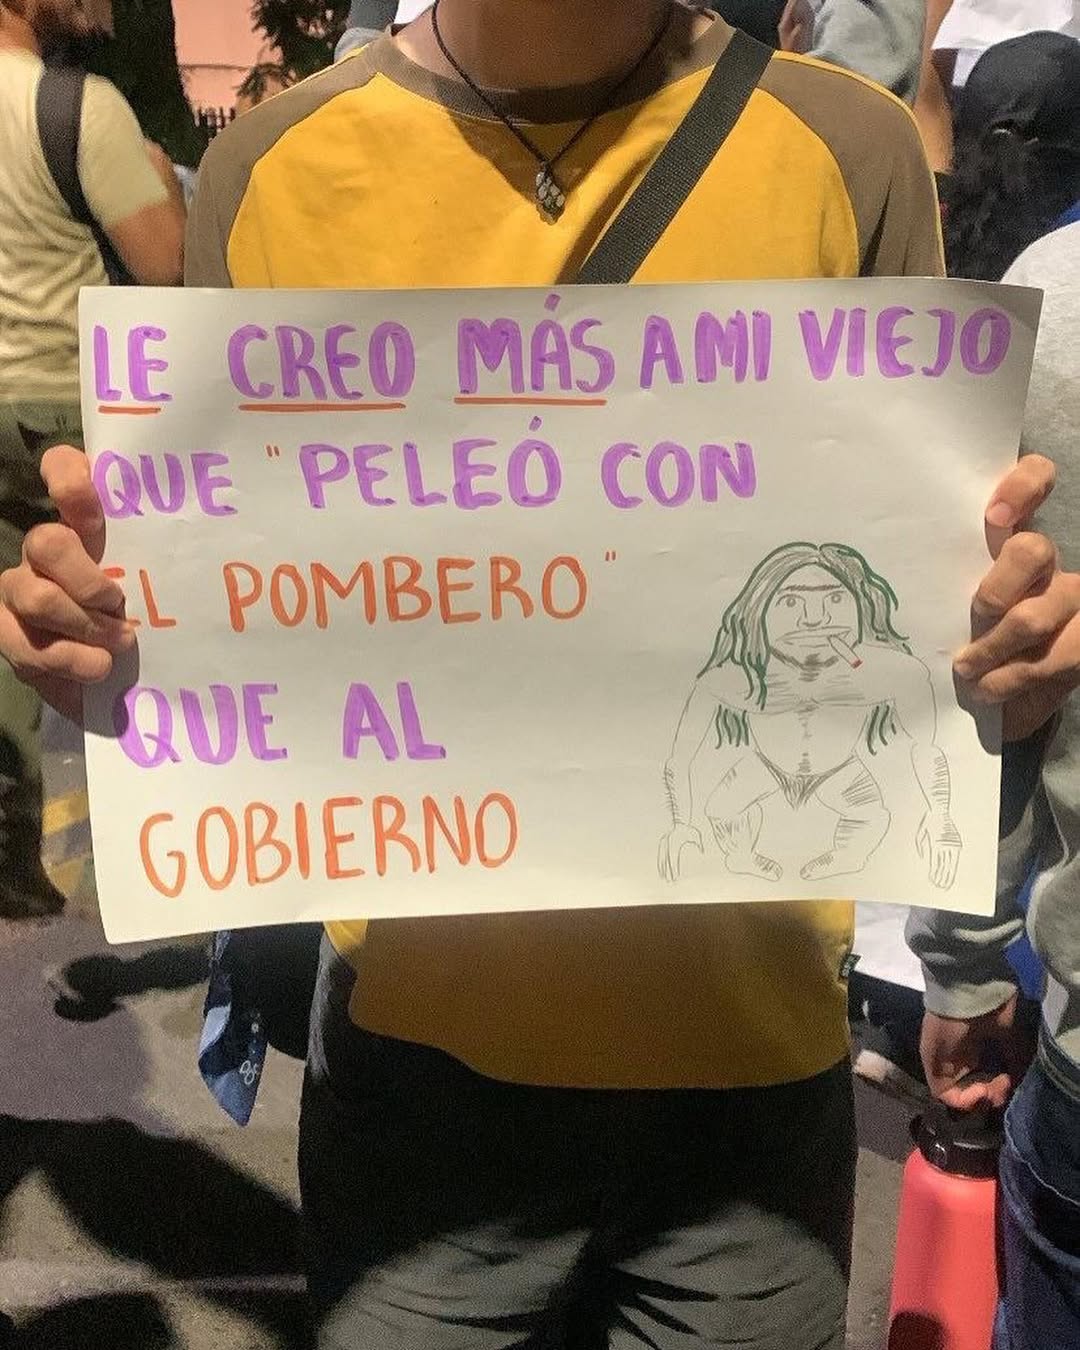 LE CREO MÁS A MI VIEJO
QUE "PELEÓ CON
EL POMBERO"
QUE AL
GOBIERNO